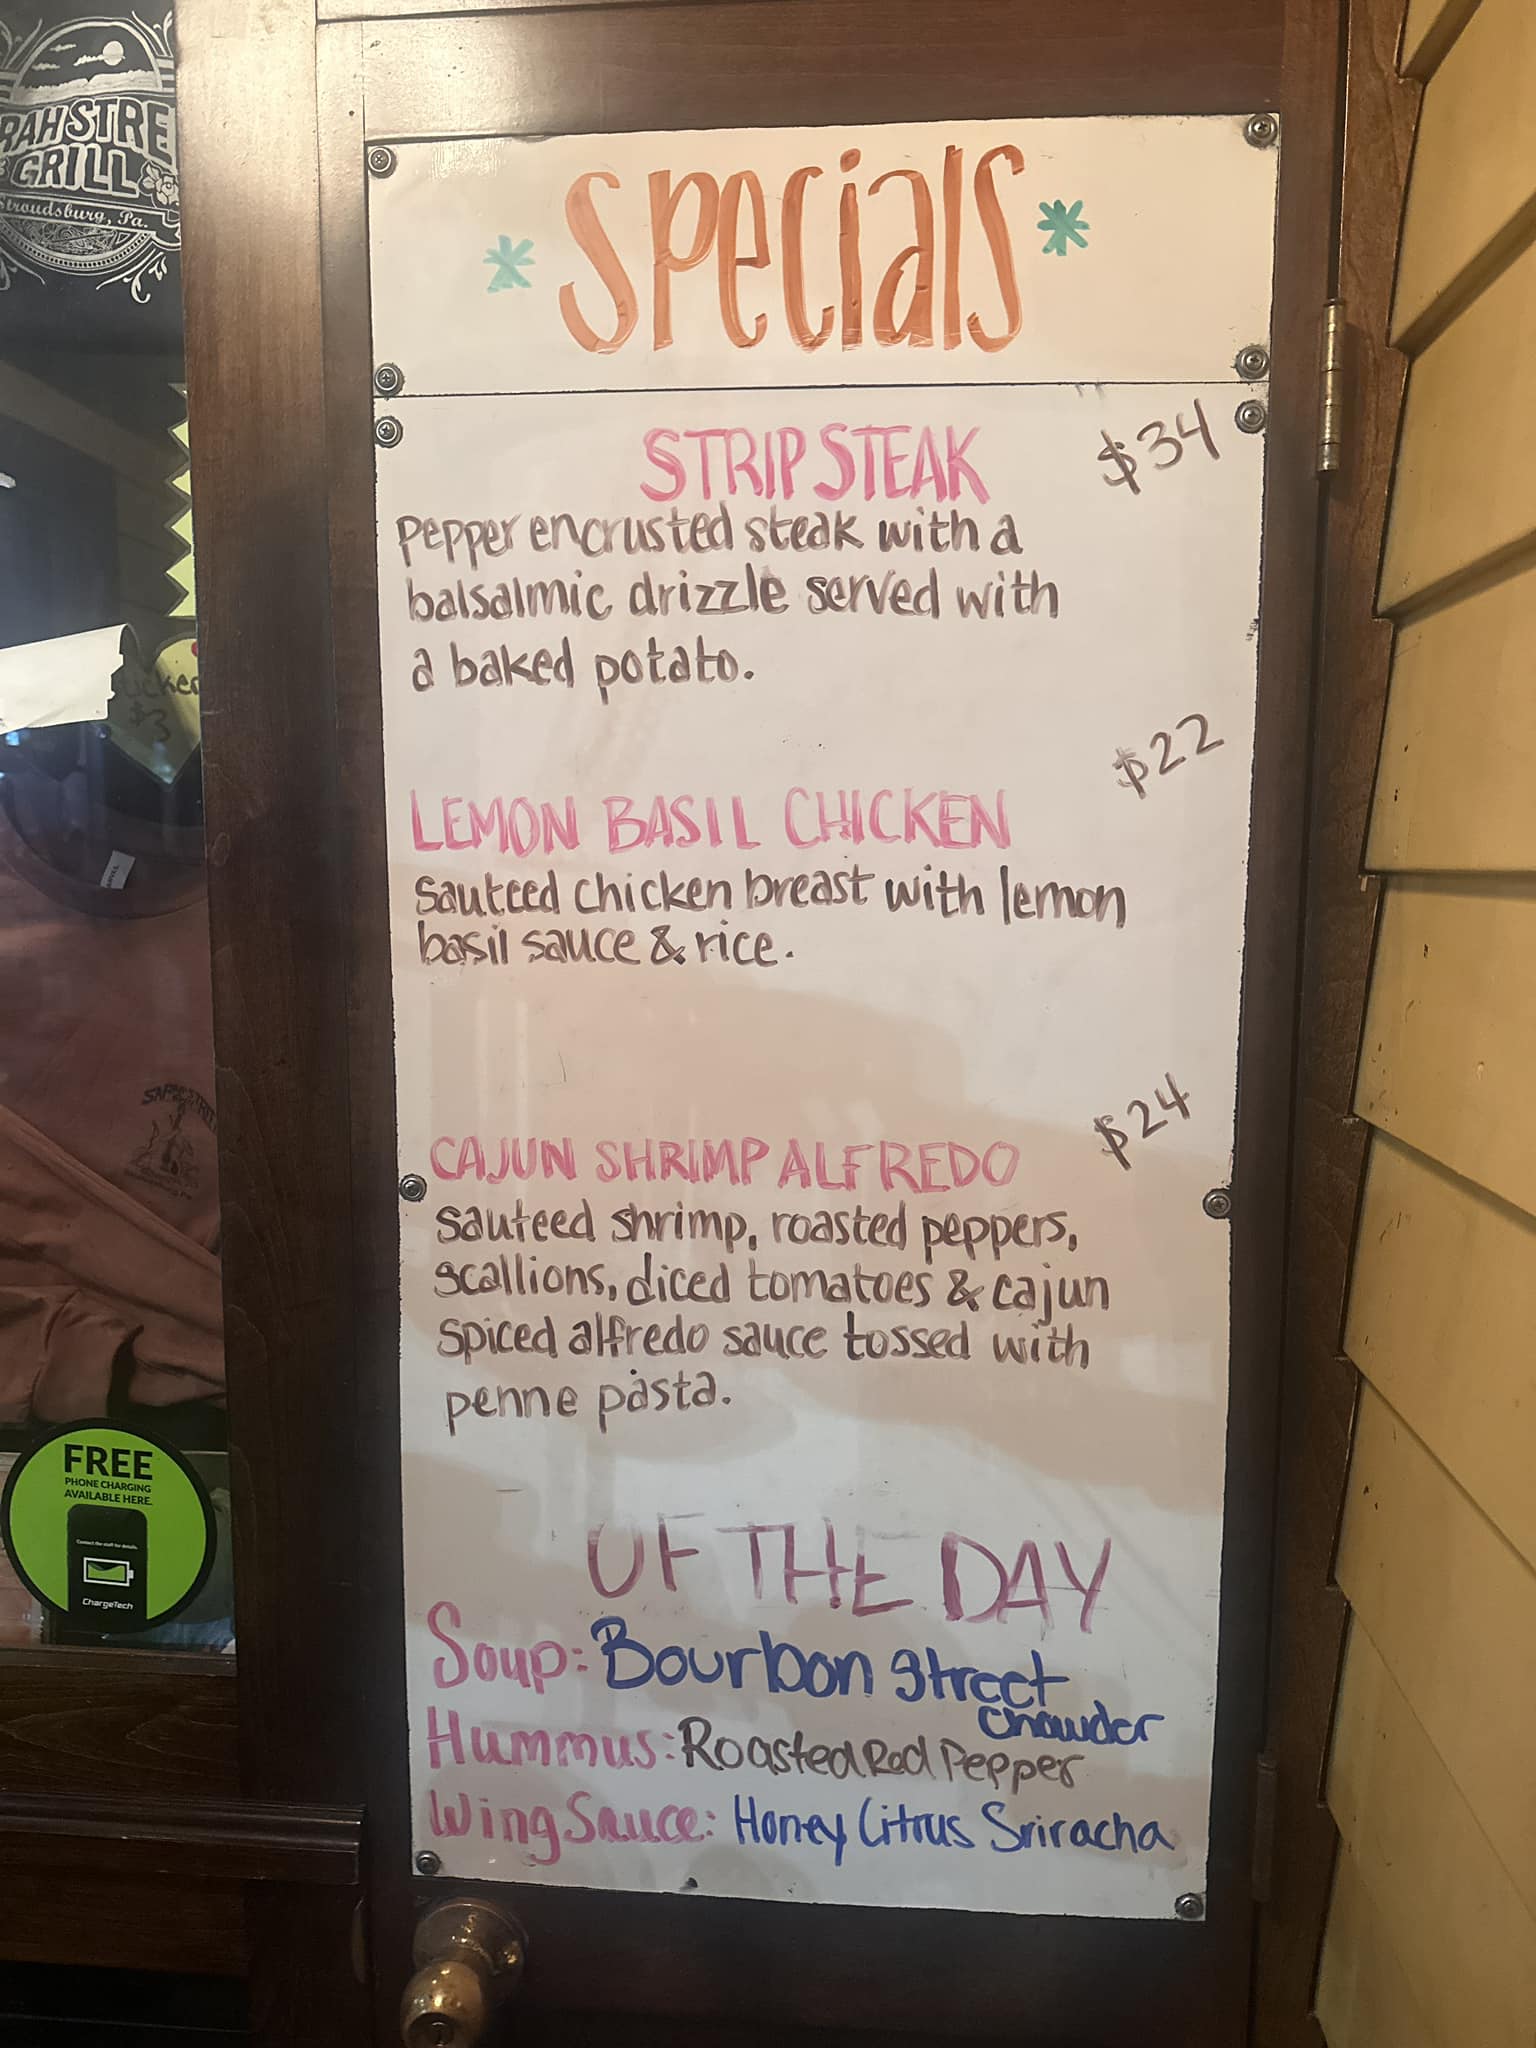 RAH STRE
GRILL
Stroudsburg, Pa.
$3
* Specials *
STRIP STEAK $34
pepper encrusted steak with a
balsalmic drizzle served with
a baked potato.
$22
LEMON BASIL CHICKEN
sauteed chicken breast with lemon
basil sauce & rice.
$24
CAJUN SHRIMP ALFREDO
sauteed shrimp, roasted peppers,
scallions, diced tomatoes & cajun
spiced alfredo sauce tossed with
penne pasta.
OF THE DAY
Soup: Bourbon Street
chowder
Hummus: Roasted Red Pepper
Wing Sauce: Honey Citrus Sriracha
FREE
PHONE CHARGING
AVAILABLE HERE.
Contact the staff for details.
ChargeTech